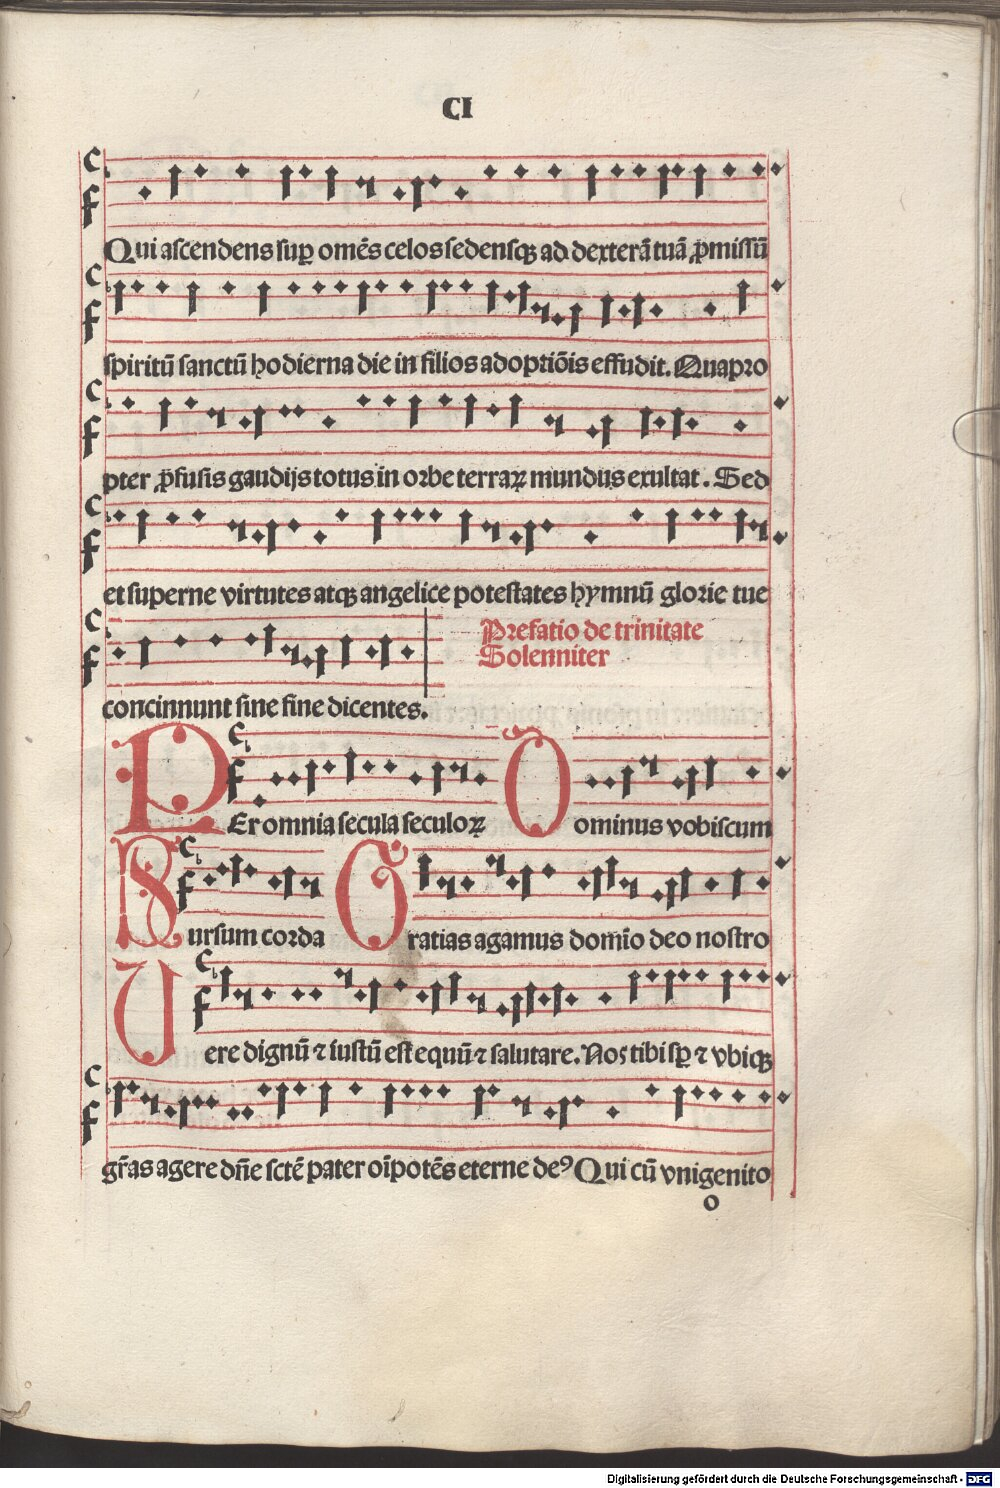 CI
Qui ascendens suꝑ omẽs celos sedensqꝫ ad dexterã tuã ꝓmissũ
spiritũ sanctũ hodierna die in filios adoptiõis effudit. Quapro
pter ꝓ̃fusis gaudijs totus in orbe terraꝝ mundus exultat. Sed
et superne virtutes atqꝫ angelice potestates hymnũ glorie tue
Prefatio de trinitate
Solenniter
concinnunt sine fine dicentes.
PEr omnia secula seculoꝝ Dominus vobiscum
Sursum corda Gratias agamus domĩo deo nostro
Uere dignũ ⁊ iustũ est equũ ⁊ salutare. Nos tibi sꝑ ⁊ vbiqꝫ
gr̃as agere dñe sctẽ pater oĩpotẽs eterne deꝰ Qui cũ vnigenito
o
Digitalisierung gefördert durch die Deutsche Forschungsgemeinschaft - DFG